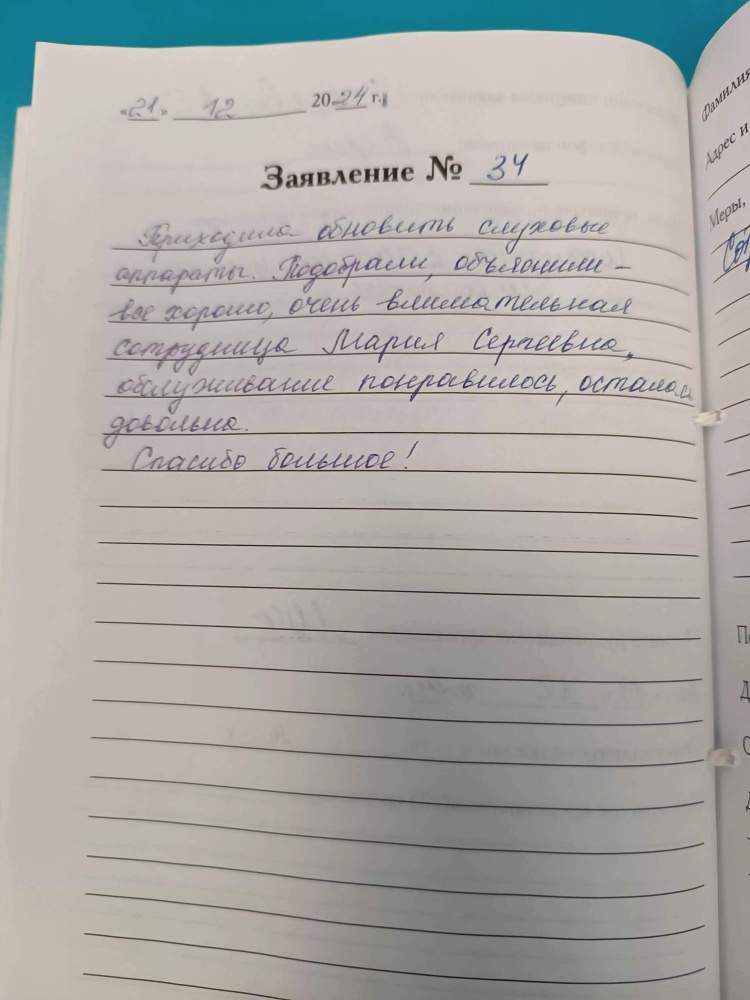 «21» 12 2024 г.
Заявление № 34
Приходила обновить слуховые
аппараты. Подобрали, объяснили –
все хорошо, очень внимательная
сотрудница Мария Сергеевна,
обслуживание понравилось, осталась
довольна.
Спасибо большое!
Фамилия
Адрес и
Меры,